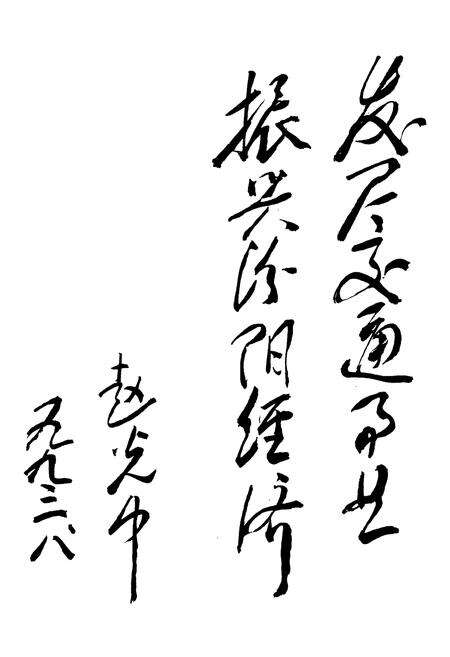 发展交通事业
振兴汾阴经济
赵光中
一九九三、八